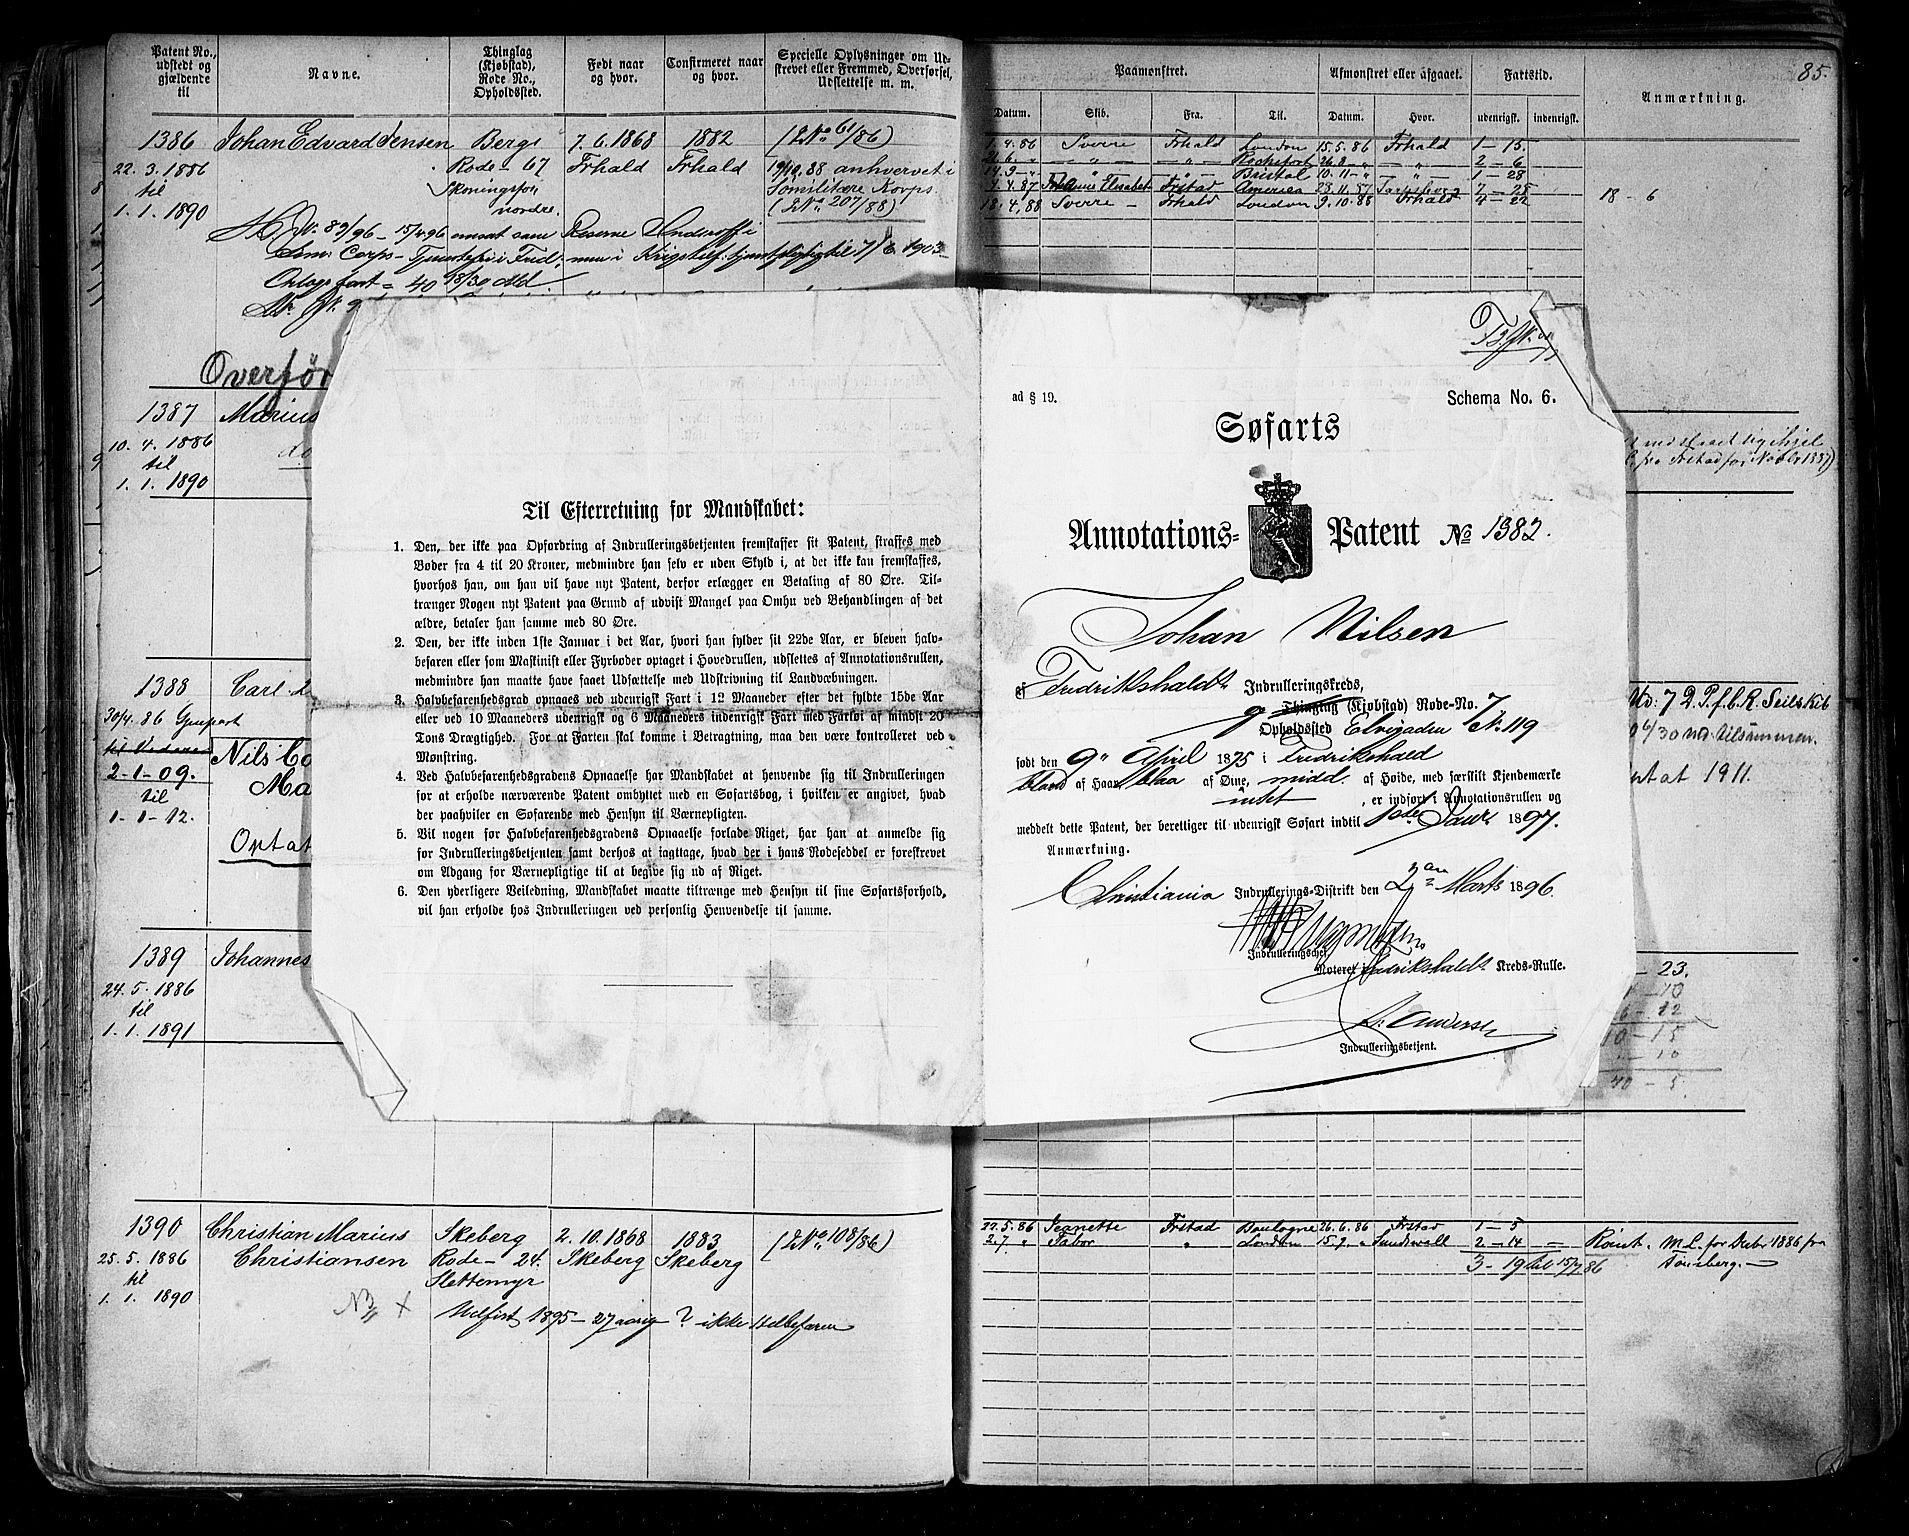 Patent No., udstedt og gjældende til
Navne.
Thinglag (Kjøbstad), Rode No., Opholdssted.
Født naar og hvor.
Confirmeret naar og hvor.
Specielle Oplysninger om Udstrevet eller Fremmed, Overførsel, Udslettelse m. m.
1386 Johan Edvard Jensen Berg 7.6.1868 1882 (LNo 61/86)
22.3.1886 Rode - 67 Frhald Frhald 19/10.88 anhvervet i
til Skoningsfos Somilitære Korps.
1.1.1890 nordre. (LNo 207/88)
No. 89/96 - 15/4 96 omsat som Reserve Underoff i
Overfør
1387 Marius
10.4.1886
til
1.1.1890
1388 Carl
30/4.86
2-1-09. Nils
til Ma
1-1-12.
Optat
1389 Johannes
24.5.1886
til
1.1.1891
1390 Christian Marius Skeberg 2.10.1868 1883 (LNo 108/86)
25.5.1886 Christiansen Rode - 24. Skeberg Skeberg
til Slettemyr
1.1.1890
Udfist 1895 - 27 aarig ? ikke Halbefaren
Til Efterretning for Mandskabet:
1. Den, der ikke paa Opfordring af Indrulleringsbetjenten fremskaffer sit Patent, straffes med
Bøder fra 4 til 20 Kroner, medmindre han selv er uden Skyld i, at det ikke kan fremskaffes,
hvorhos han, om han vil have nyt Patent, derfor erlægger en Betaling af 80 Øre. Til-
trænger Nogen nyt Patent paa Grund af udvist Mangel paa Omhu ved Behandlingen af det
ældre, betaler han samme med 80 Øre.
2. Den, der ikke inden 1ste Januar i det Aar, hvori han fylder sit 22de Aar, er bleven halv-
befaren eller som Maskinist eller Fyrbøder optaget i Hovedrullen, udslettes af Annotationsrullen,
medmindre han maatte have faaet Udsættelse med Udskrivning til Landværbningen.
3. Halvbefarenhedsgrad opnaaes ved udenrigsk Fart i 12 Maaneder efter det fyldte 15de Aar
eller ved 10 Maaneders udenrigsk og 6 Maaneders indenrigsk Fart med Farkoi af mindst 20
Tons Drægtighed. For at Farten skal komme i Betragtning, maa den være kontrolleret ved
Mønstring.
4. Ved Halvbefarenhedsgradens Opnaaelse har Mandskabet at henvende sig til Indrulleringen
for at erholde nærværende Patent ombyttet med en Søfartsbog, i hvilken er angivet, hvad
der paahviler en Søfarende med Hensyn til Værnepligten.
5. Vil nogen før Halvbefarenhedsgradens Opnaaelse forlade Riget, har han at anmelde sig
for Indrulleringsbetjenten samt derhos at iagttage, hvad der i hans Rodeseddel er foreskrevet
om Adgang for Værnepligtige til at begive sig ud af Riget.
6. Den yderligere Veiledning, Mandskabet maatte tiltrænge med Hensyn til sine Søfartsforhold,
vil han erholde hos Indrulleringen ved personlig Henvendelse til samme.
85.
Paamønstret.
Afmønstret eller afgaaet.
Fartstid.
Anmærkning.
Datum. Skib. Fra. Til. Datum. Hvor. udenrigsk. indenrigsk.
1.4.86 Sverre Frhald London 15.5.86 Frhald 1-15.
21.6.-" -"- -"- Rochefort 26.8-" -"- 2-6
14.9-" " -"- Bristol 10.11-" -"- 1-28
4.4.87 Johannes Elisabet Frstad America 28.11.87 Sarpsborg 7-25 18-6
18.4.88 Sverre - Frhald London 9.10.88 Frhald 4-22
ad § 19.
Schema No. 6.
Søfarts
Annotations= Patent No 1382.
Johan Nilsen
af Fredrikshalds Indrulleringskreds,
Thinglag (Kjøbstad) Rode-No. 7
Opholdssted Elvegaden No. 119
født den 9" April 1875 i Fredrikshald
blond af Haar, blaa af Øine, midd. af Høide, med særskilt Kjendemærke
intet, er indført i Annotationsrullen og
meddelt dette Patent, der berettiger til udenrigsk Søfart indtil 1ste Januar 1897.
Anmærkning.
Christiania Indrullerings-Distrikt den 2den Marts 1896.
Indrulleringschef.
Noteret i Fredrikshalds Kreds-Rulle.
Andersen
Indrulleringsbetjent.
Frstad for Novbr 1887)
Ud: 7 D.P.f.C.R. Seilskib
ptat 1911.
- 23.
10-15
40-5.
22.5.86 Jeanette Frstad Boulogne 26.6.86 Frstad 1-5
2.7 " Tabor " London 15.9.-" Sundswall 2-14 = Rømt. M.L. for Debr 1886 fra
3-19 Tønsberg. -